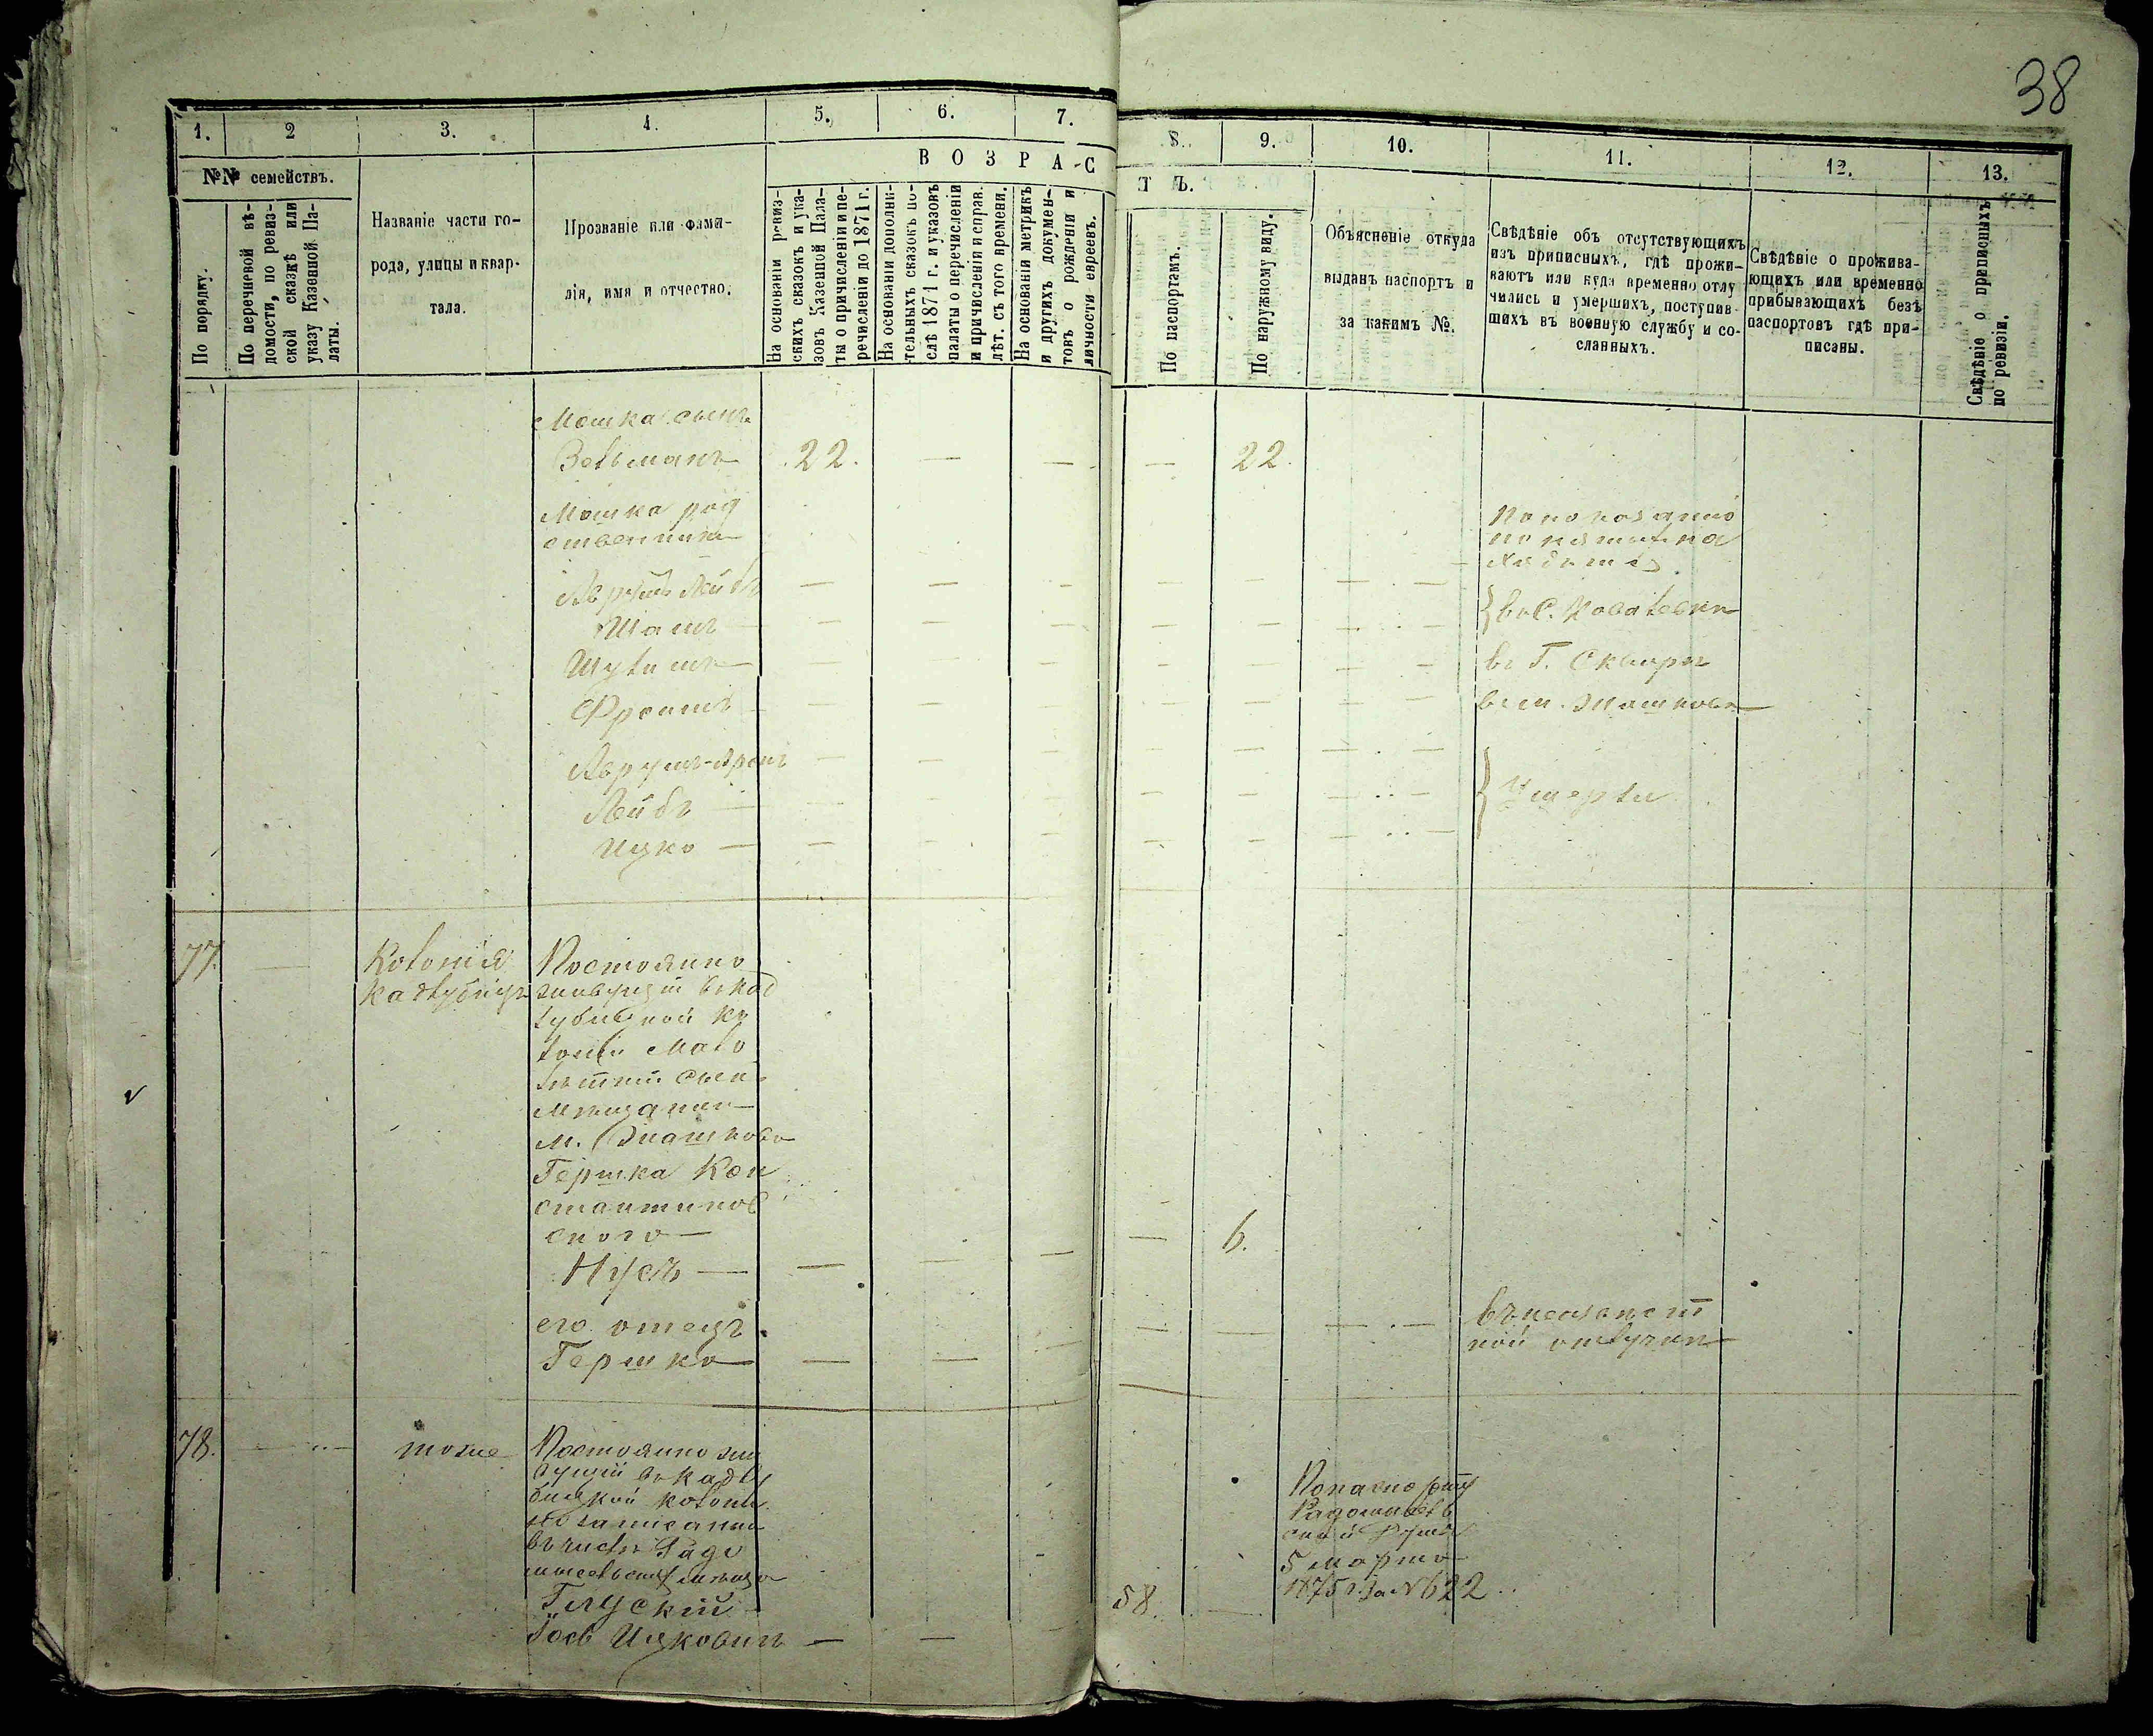 38
1.
2
3.
4.
5.
6.
7.
8.
9.
10.
11.
12.
13.
№№ семействъ.
В О З Р А С
Т Ъ.
По порядку.
По перечневой вѣ-
домости, по ревиз-
ской сказкѣ или
указу Казенной Па-
латы.
Названіе части го-
рода, улицы и квар-
тала.
Прозваніе или фами-
лія, имя и отчество.
На основаніи ревиз-
скихъ сказокъ и ука-
зовъ Казенной Пала-
ты о причисленіи и пе-
речисленіи до 1871 г.
На основаніи дополни-
тельныхъ сказокъ по-
слѣ 1871 г. и указовъ
палаты о перечисленіи
и причисленіи и справ.
лѣт. съ того времени.
На основаніи метрикъ
и другихъ докумен-
товъ о рожденіи и
личности евреевъ.
По паспортамъ.
По наружному виду.
Объясненіе откуда
выданъ паспортъ и
за какимъ №.
Свѣдѣніе объ отсутствующихъ
изъ приписныхъ, гдѣ прожи-
ваютъ или куда временно отлу
чились и умершихъ, поступив
шихъ въ военную службу и со-
сланныхъ.
Свѣдѣніе о прожива-
ющихъ или временно
прибывающихъ безъ
паспортовъ гдѣ при-
писаны.
Свѣдѣніе о приписныхъ
по ревизіи.
Мошка сынъ
Зельманъ 22. — — — 22.
Мошка род
ственники
По показанію
находятся
Аврумъ Лейбъ — — — — — —
} въ С.
Шаль — — — — — —
Шулимъ — — — — — — въ Г. Сквирѣ
Фроимъ — — — — — — въ м. Жашковѣ
Аврумъ-Аронъ — — — — — —
Лейбъ — — — — — — } Умерли
Ицко — — — — — —
77. — Колонія Постоянно
Кадлубица живущій въ Кад
лубицкой ко
лоніи Мало
лѣтній сынъ
мѣщанина
м. Жашкова
Гершка Кон
стантинов
ского
Нусъ — — — — 6.
его отецъ
Гершко — — — — — —
въ безвѣст
ной отлучкѣ
78. — тоже Постоянно жи
вущій въ Кадлу
бицкой колоніи
записанный
въ числѣ Радо
мысльскихъ мѣщанъ
Глускій
Іось Ицковичъ — — 58. —
По паспорту
Радомысль
ской Думы
5 марта
1875 г. за № 622